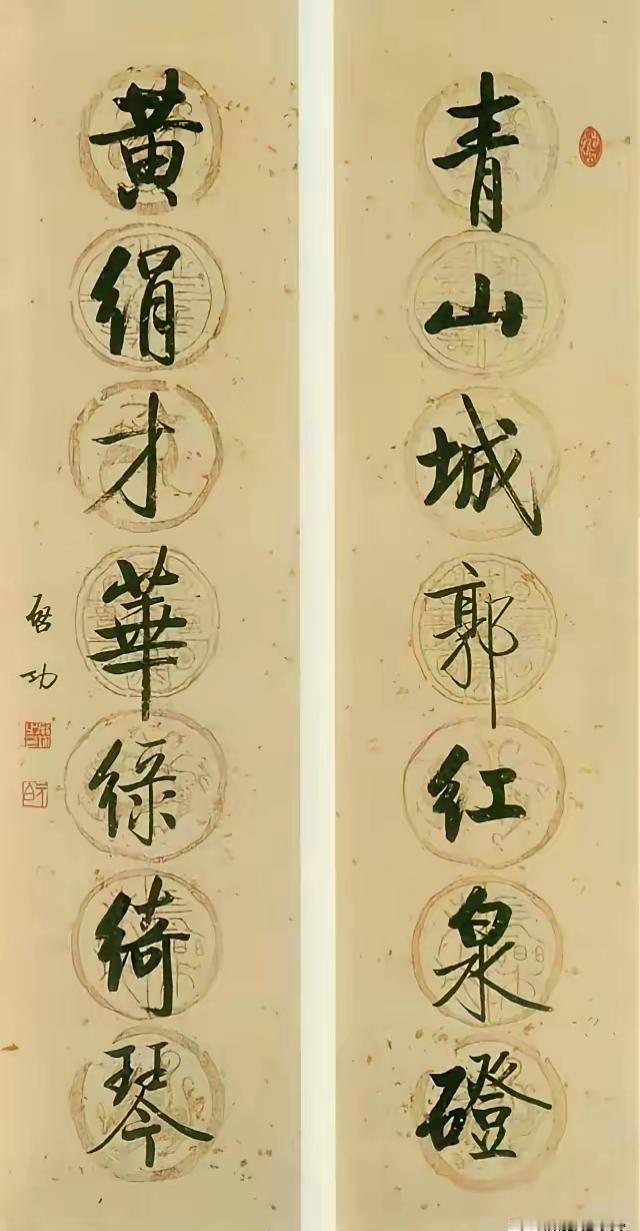 青山城郭红泉磴
黃絹才華綠綺琴
啓功